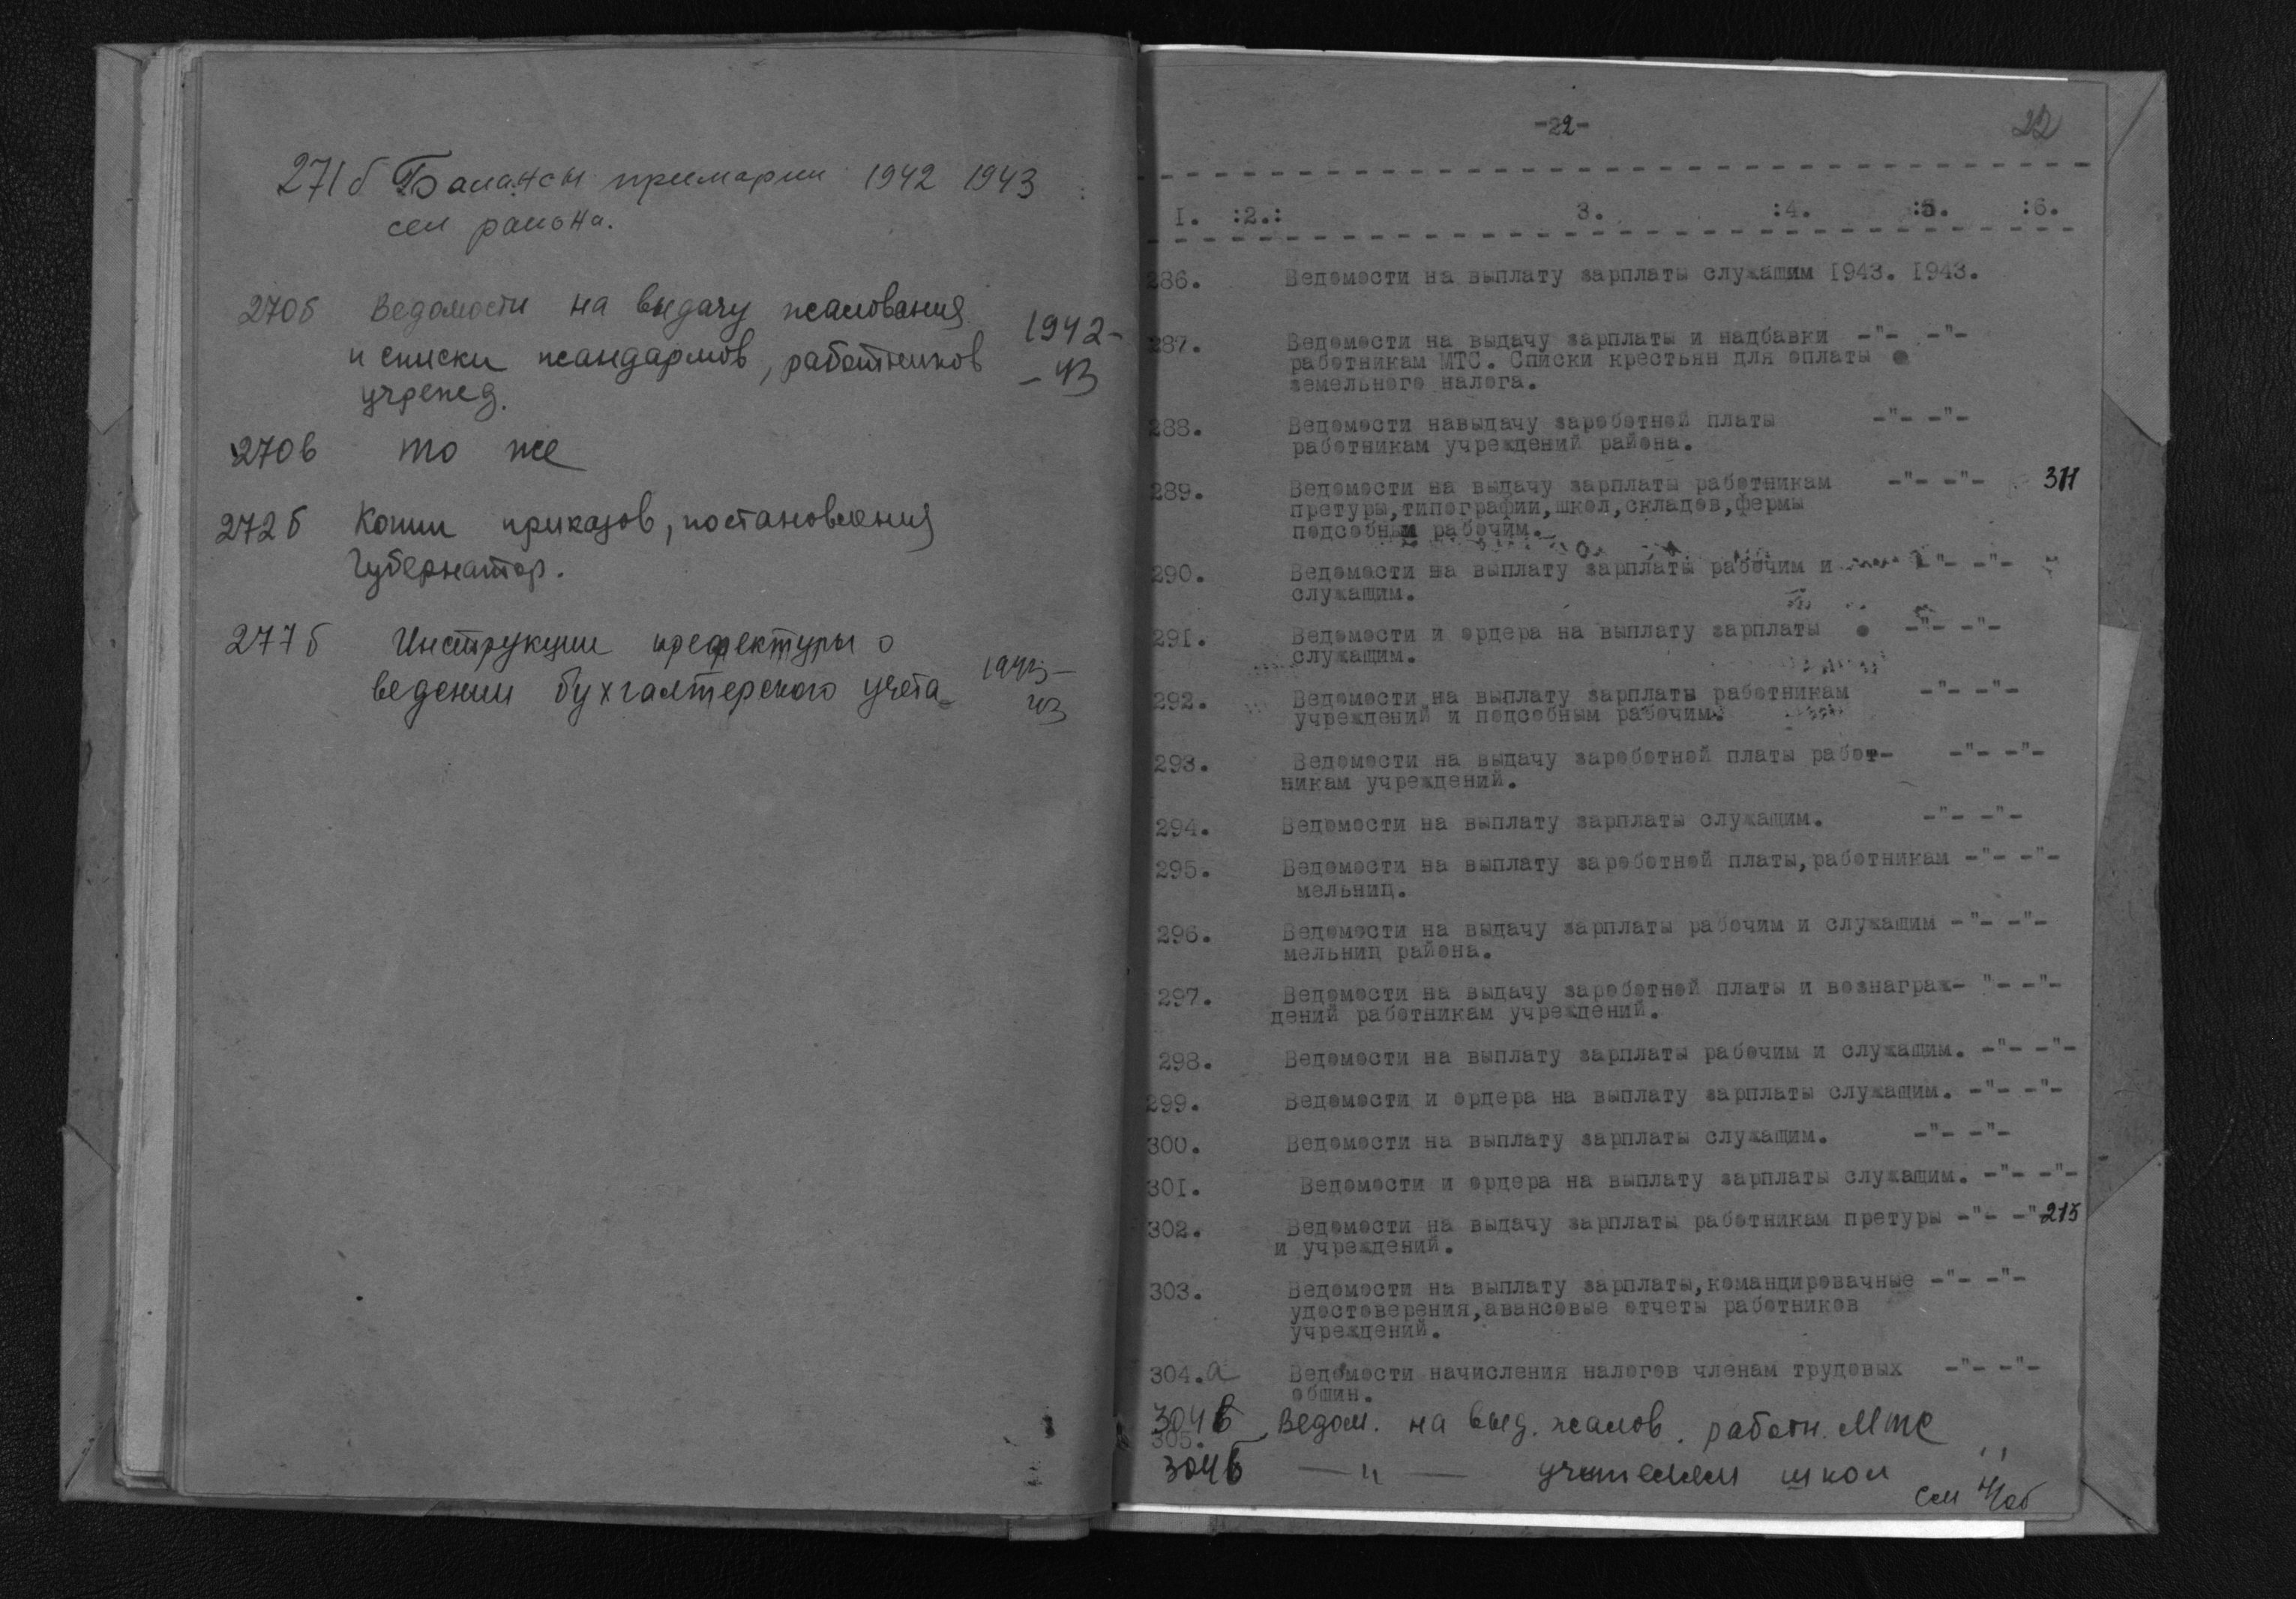 271б Балансы примарии 1942 1943
сел района.
270б Ведомости на выдачу жалования 1942-
и списки жандармов, работников -43
учрежд.
270в то же
272б Копии приказов, постановления
Губернатор.
277б Инструкции префектуры о
ведении бухгалтерского учета
43
-22-
22
I. :2.: 3. :4. :5. :6.
286. Ведомости на выплату зарплаты служащим 1943. 1943.
287. Ведомости на выдачу зарплаты и надбавки -"- -"-
работникам МТС. Списки крестьян для оплаты
земельного налога.
288. Ведомости навыдачу зароботной платы -"- -"-
работникам учреждений района.
289. Ведомости на выдачу зарплаты работникам -"- -"- 311
претуры,типографии,школ,складов,фермы
подсобным рабочим.
290. Ведомости на выплату зарплаты рабочим и -"- -"-
служащим.
291. Ведомости и ордера на выплату зарплаты -"- -"-
служащим.
292. Ведомости на выплату зарплаты работникам -"- -"-
учреждений и подсобным рабочим.
293. Ведомости на выдачу зароботной платы работ- -"- -"-
никам учреждений.
294. Ведомости на выплату зарплаты служащим. -"- -"-
295. Ведомости на выплату зароботной платы,работникам -"- -"-
мельниц.
296. Ведомости на выдачу зарплаты рабочим и служащим -"- -"-
мельниц района.
297. Ведомости на выдачу зароботной платы и вознаграж- "- -"-
дений работникам учреждений.
298. Ведомости на выплату зарплаты рабочим и служащим. -"- -"-
299. Ведомости и ордера на выплату зарплаты служащим. -"- -"-
300. Ведомости на выплату зарплаты служащим. -"- -"-
301. Ведомости и ордера на выплату зарплаты служащим. -"- -"-
302. Ведомости на выдачу зарплаты работникам претуры -"- -" 215
и учреждений.
303. Ведомости на выплату зарплаты,командировачные -"- -"-
удостоверения,авансовые отчеты работников
учреждений.
304.а Ведомости начисления налогов членам трудовых -"- -"-
общин.
304в Ведом. на выд. жалов. работн. МТС
305.
304б —"— учителям школ "
см н/об